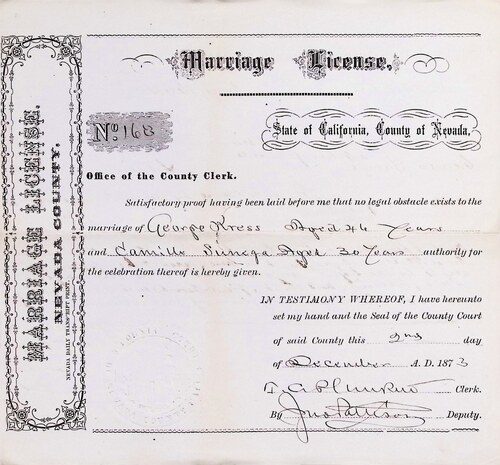 Marriage License.
MARRIAGE LICENSE.
NEVADA COUNTY.
NEVADA DAILY TRANSCRIPT PRINT.
No 168
State of California, County of Nevada,
Office of the County Clerk.
Satisfactory proof having been laid before me that no legal obstacle exists to the
marriage of George Kress Aged 46 Years
and Camille Aged 30 Years authority for
the celebration thereof is hereby given.
IN TESTIMONY WHEREOF, I have hereunto
set my hand and the Seal of the County Court
of said County this 2nd day
of December A. D. 1873
Clerk.
By Jno Pattison Deputy.